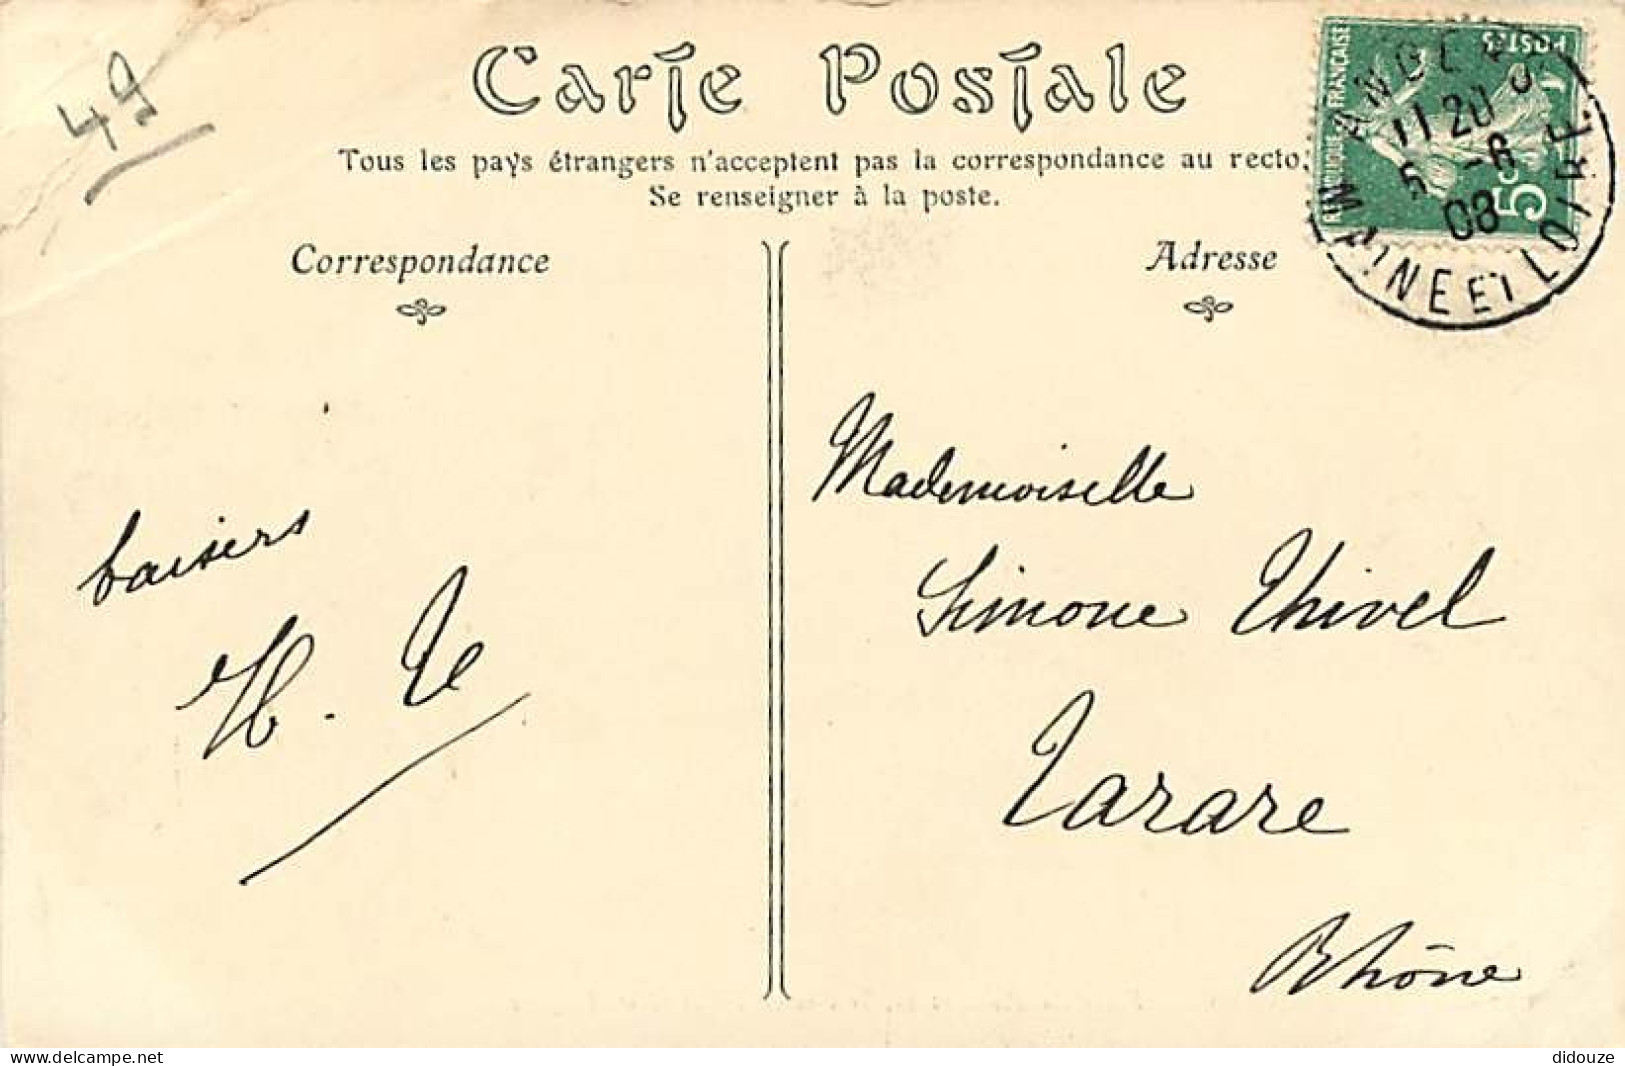 49
Carte Postale
Tous les pays étrangers n'acceptent pas la correspondance au recto.
Se renseigner à la poste.
Correspondance
Adresse
REPUBLIQUE FRANÇAISE
POSTES
5c
ANGERS
11 20
6 -6
08
MAINE ET LOIRE
baisers
Mademoiselle
Simone Thivel
Tarare
Rhône
www.delcampe.net
didouze